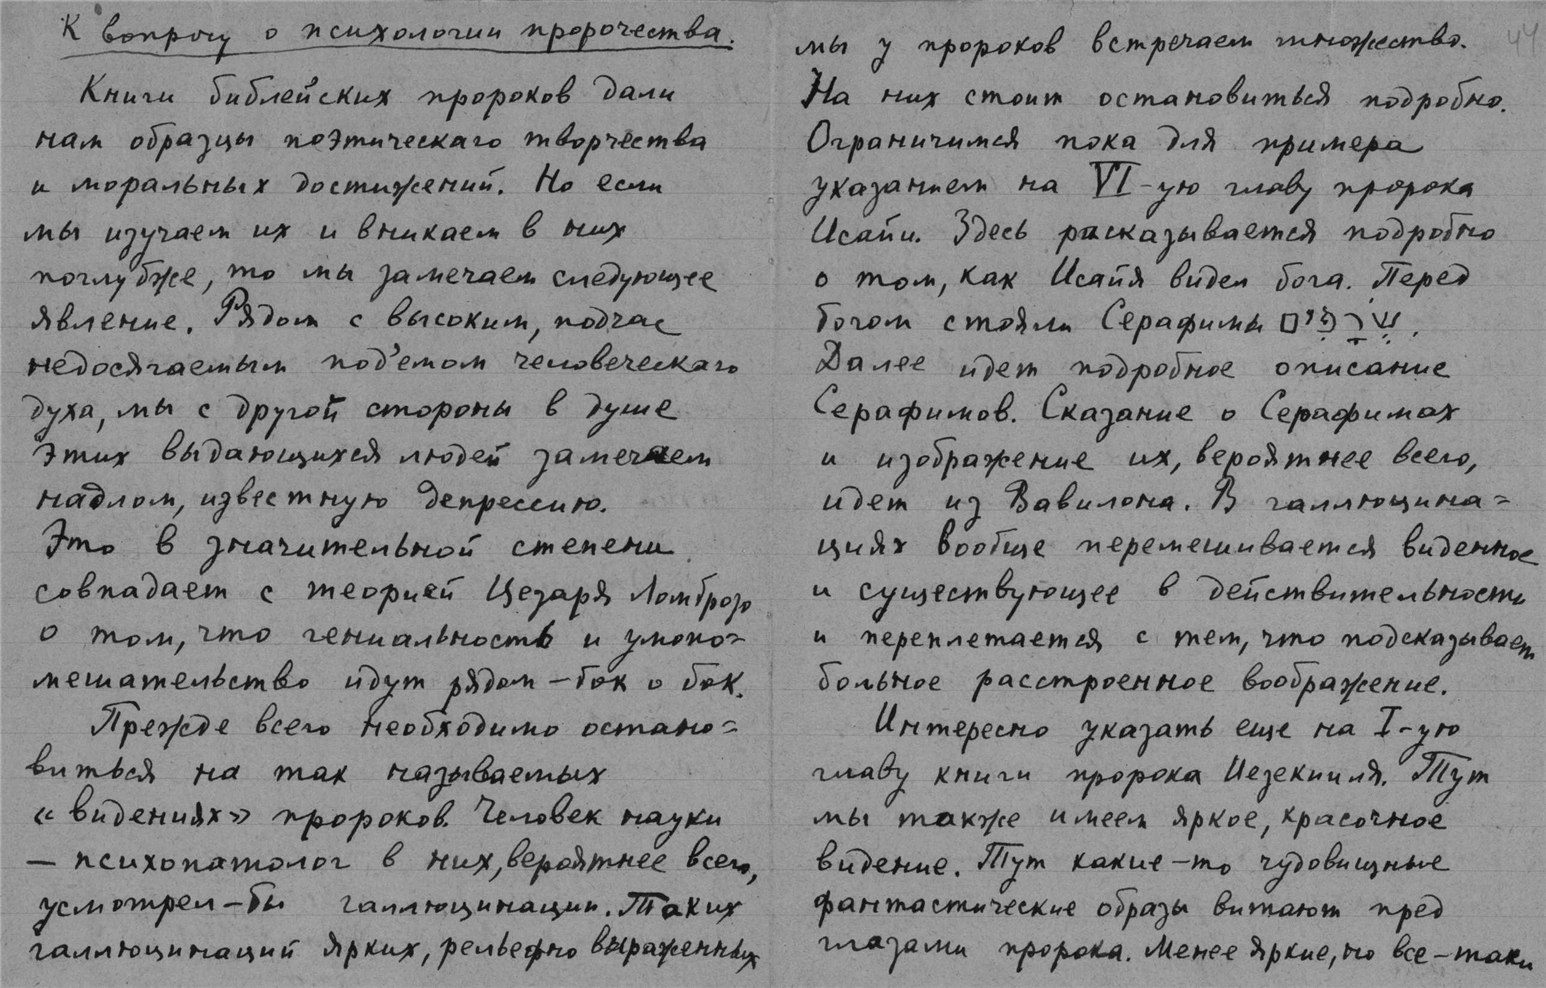 К вопросу о психологии пророчества.
Книги библейских пророков дали
нам образцы поэтическаго творчества
и моральных достижений. Но если
мы изучаем их и вникаем в них
поглубже, то мы замечаем следующее
явление. Рядом с высоким, подчас
недосягаемым под'емом человеческаго
духа, мы с другой стороны в душе
этих выдающихся людей замечаем
надлом, известную депрессию.
Это в значительной степени
совпадает с теорией Цезаря Ломброзо
о том, что гениальность и умопо=
мешательство идут рядом – бок о бок.
Прежде всего необходимо остано=
виться на так называемых
«видениях» пророков. Человек науки
– психопатолог в них, вероятнее всего,
усмотрел-бы галлюцинации. Таких
галлюцинаций ярких, рельефно выраженных
44
мы у пророков встречаем множество.
На них стоит остановиться подробно.
Ограничимся пока для примера
указанием на VI-ую главу пророка
Исайи. Здесь расказывается подробно
о том, как Исайя видел бога. Перед
богом стояли Серафимы שְׂרָפִים.
Далее идет подробное описание
Серафимов. Сказание о Серафимах
и изображение их, вероятнее всего,
идет из Вавилона. В галлюцина=
циях вообще перемешивается виденное
и существующее в действительности
и переплетается с тем, что подсказывает
больное расстроенное воображение.
Интересно указать еще на I-ую
главу книги пророка Иезекииля. Тут
мы также имеем яркое, красочное
видение. Тут какие-то чудовищные
фантастические образы витают пред
глазами пророка. Менее яркие, но все-таки